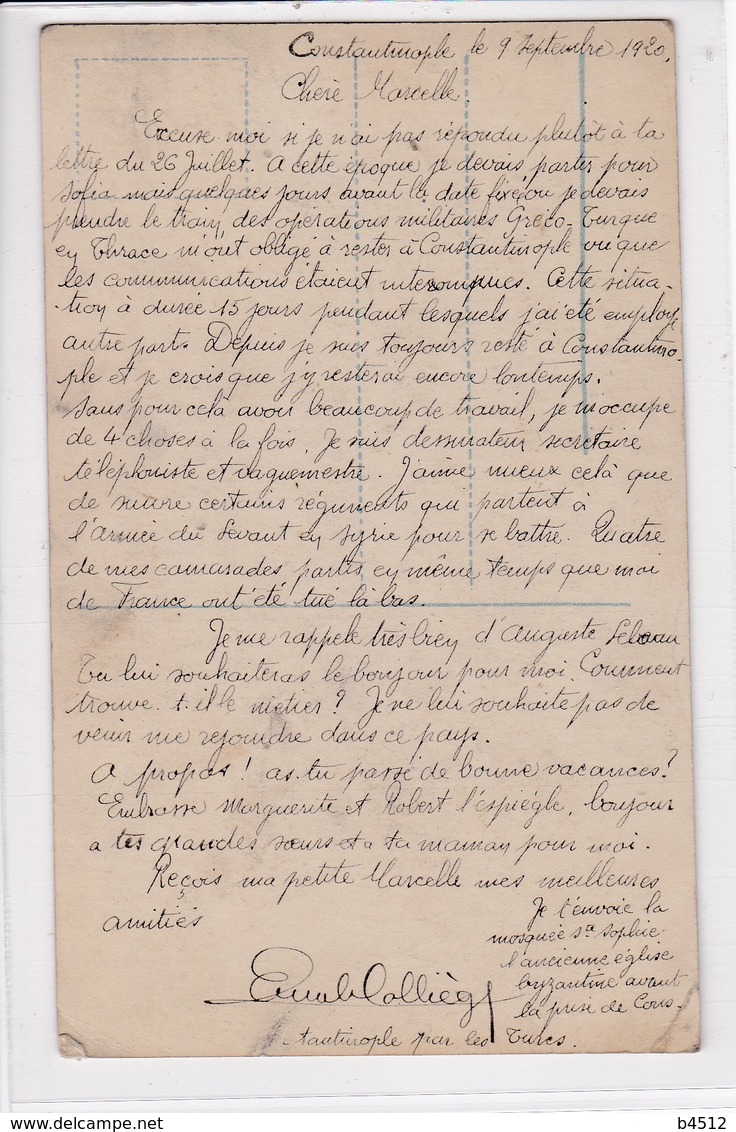 Constantinople le 9 Septembre 1920.
Chere Marcelle.
Excuse moi si je n'ai pas répondu plutôt à ta
lettre du 26 Juillet. A cette époque je devais partir pour
Sofia mais quelques jours avant la date fixé ou je devais
prendre le train des opérations militaires Greco-Turque
en Thrace m'ont obligé à rester à Constantinople vu que
les communications étaient interompues. Cette situa-
-tion à durée 15 jours pendant lesquels j'ai été employé
autre part. Depuis je suis toujours resté à Constantino-
ple et je crois que j'y resterai encore lontemps.
Sans pour cela avoir beaucoup de travail, je m'occupe
de 4 choses à la fois. Je suis dessinateur secretaire
téléphoniste et vaguemestre. J'aime mieux celà que
de suivre certains régiments qui partent à
l'armée du Levant en Syrie pour se battre. Quatre
de mes camarades partis en même temps que moi
de France ont été tué là bas.
Je me rappele très bien d'Auguste
Tu lui souhaiteras le bonjour pour moi. Comment
trouve-t-il le métier? Je ne lui souhaite pas de
venir me rejoindre dans ce pays.
A propos! as-tu passé de bonne vacances?
Embrasse Marguerite et Robert l'espiégle, bonjour
a tes grandes sœurs et a ta maman pour moi.
Reçois ma petite Marcelle mes meilleures
amitiés
Je t'envoie la
mosquée Ste Sophie
l'ancienne église
byzantine avant
la prise de Cons-
-tantinople par les Turcs.
b4512